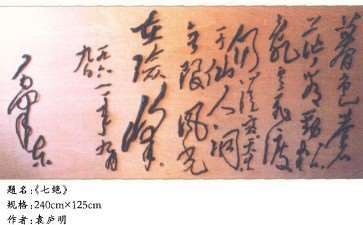 暮色蒼
茫看勁松
亂雲飛渡
仍從容天生一
个仙人洞
無限風光
在險峰
一九六一年九月
九日
毛泽东
题名:《七绝》
规格:240cm×125cm
作者:袁庐明